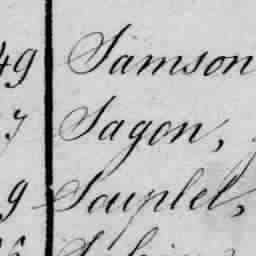 49 Samson
7 Sagon,
9 Souplet,